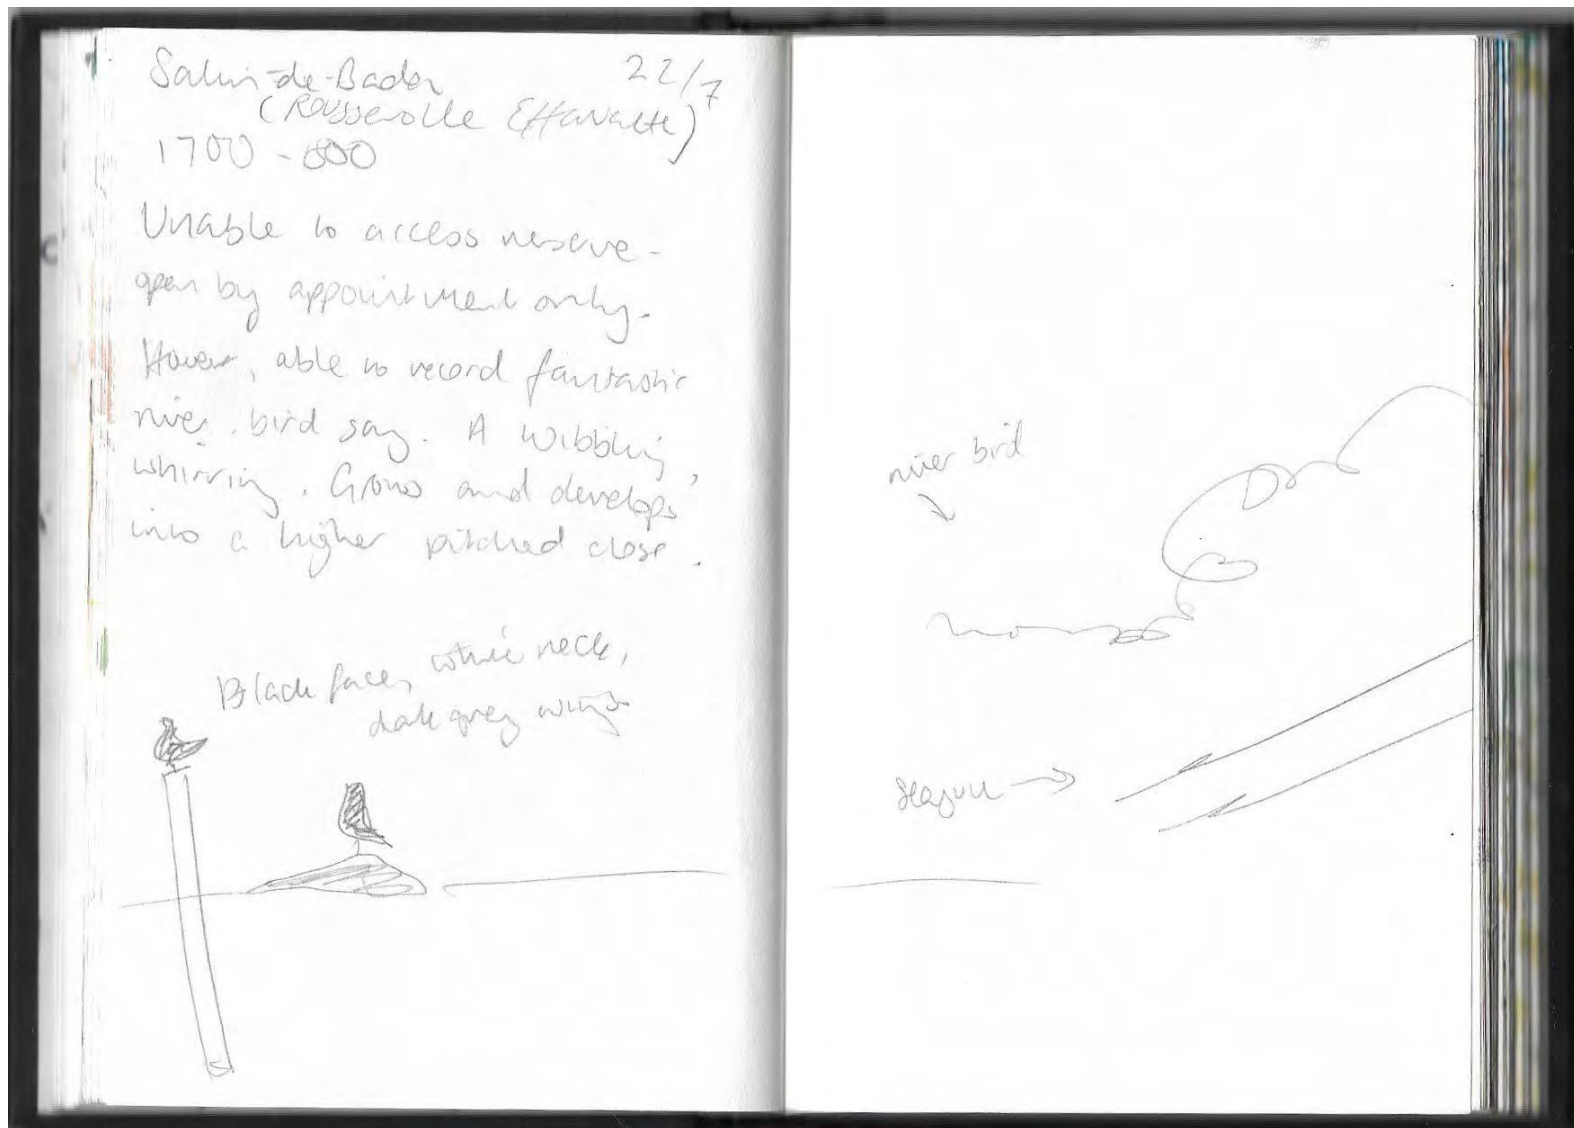 Salin-de-Badon 22/7
(Rousserolle Effarvatte)
1700 -
Unable to access reserve -
open by appointment only.
However, able to record fantastic
river bird song. A wibbling,
whirring. Grows and develops
into a higher pitched close.
Black face, white neck,
dark grey wings
river bird
seagull